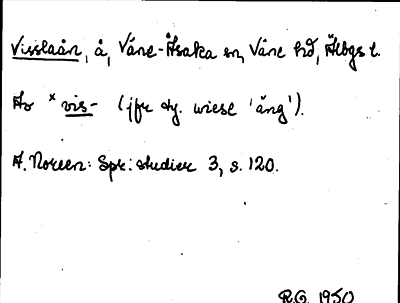 Visslaån, å, Väne-Åsaka sn, Väne hd, Älvbgs l.
Av *vis- (jfr ty. wiese 'äng').
A. Noreen: Spr. studier 3, s. 120.
R.G. 1950